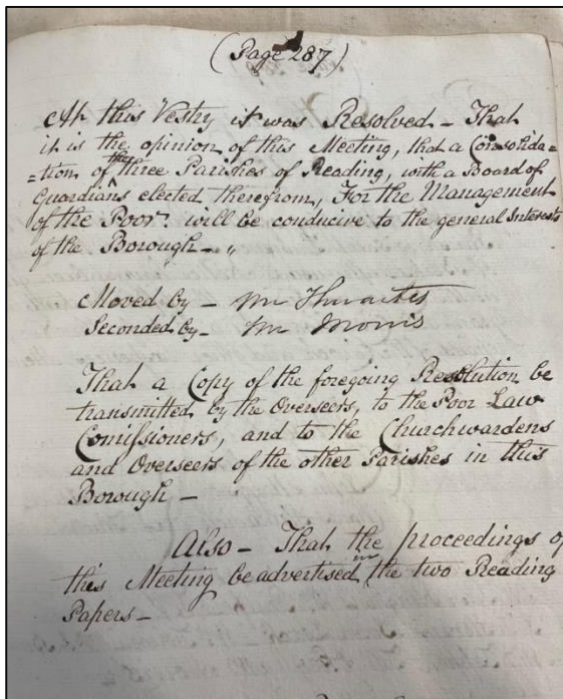 (Page 287)
At this Vestry it was Resolved - That
it is the opinion of this Meeting, that a Consolida=
=tion of the three Parishes of Reading, with a Board of
Guardians elected therefrom, For the Management
of the Poor will be conducive to the general Interests
of the Borough - "
Moved by - Mr Thwaites
Seconded by - Mr Morris
That a Copy of the foregoing Resolution be
transmitted by the Overseers, to the Poor Law
Comissioners, and to the Churchwardens
and Overseers of the other Parishes in this
Borough -
Also - That the proceedings of
this Meeting be advertised in the two Reading
Papers -